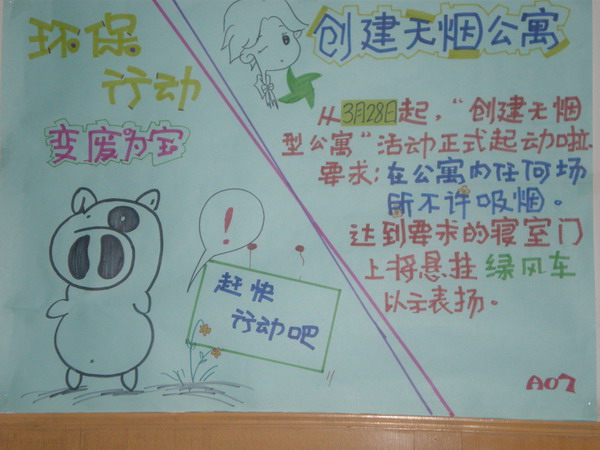 环保
行动
变废为宝
!
赶快
行动吧
创建无烟公寓
从3月28日起，“创建无烟
型公寓”活动正式起动啦.
要求:在公寓内任何场
所不许吸烟。
达到要求的寝室门
上将悬挂绿风车
以示表扬。
A07